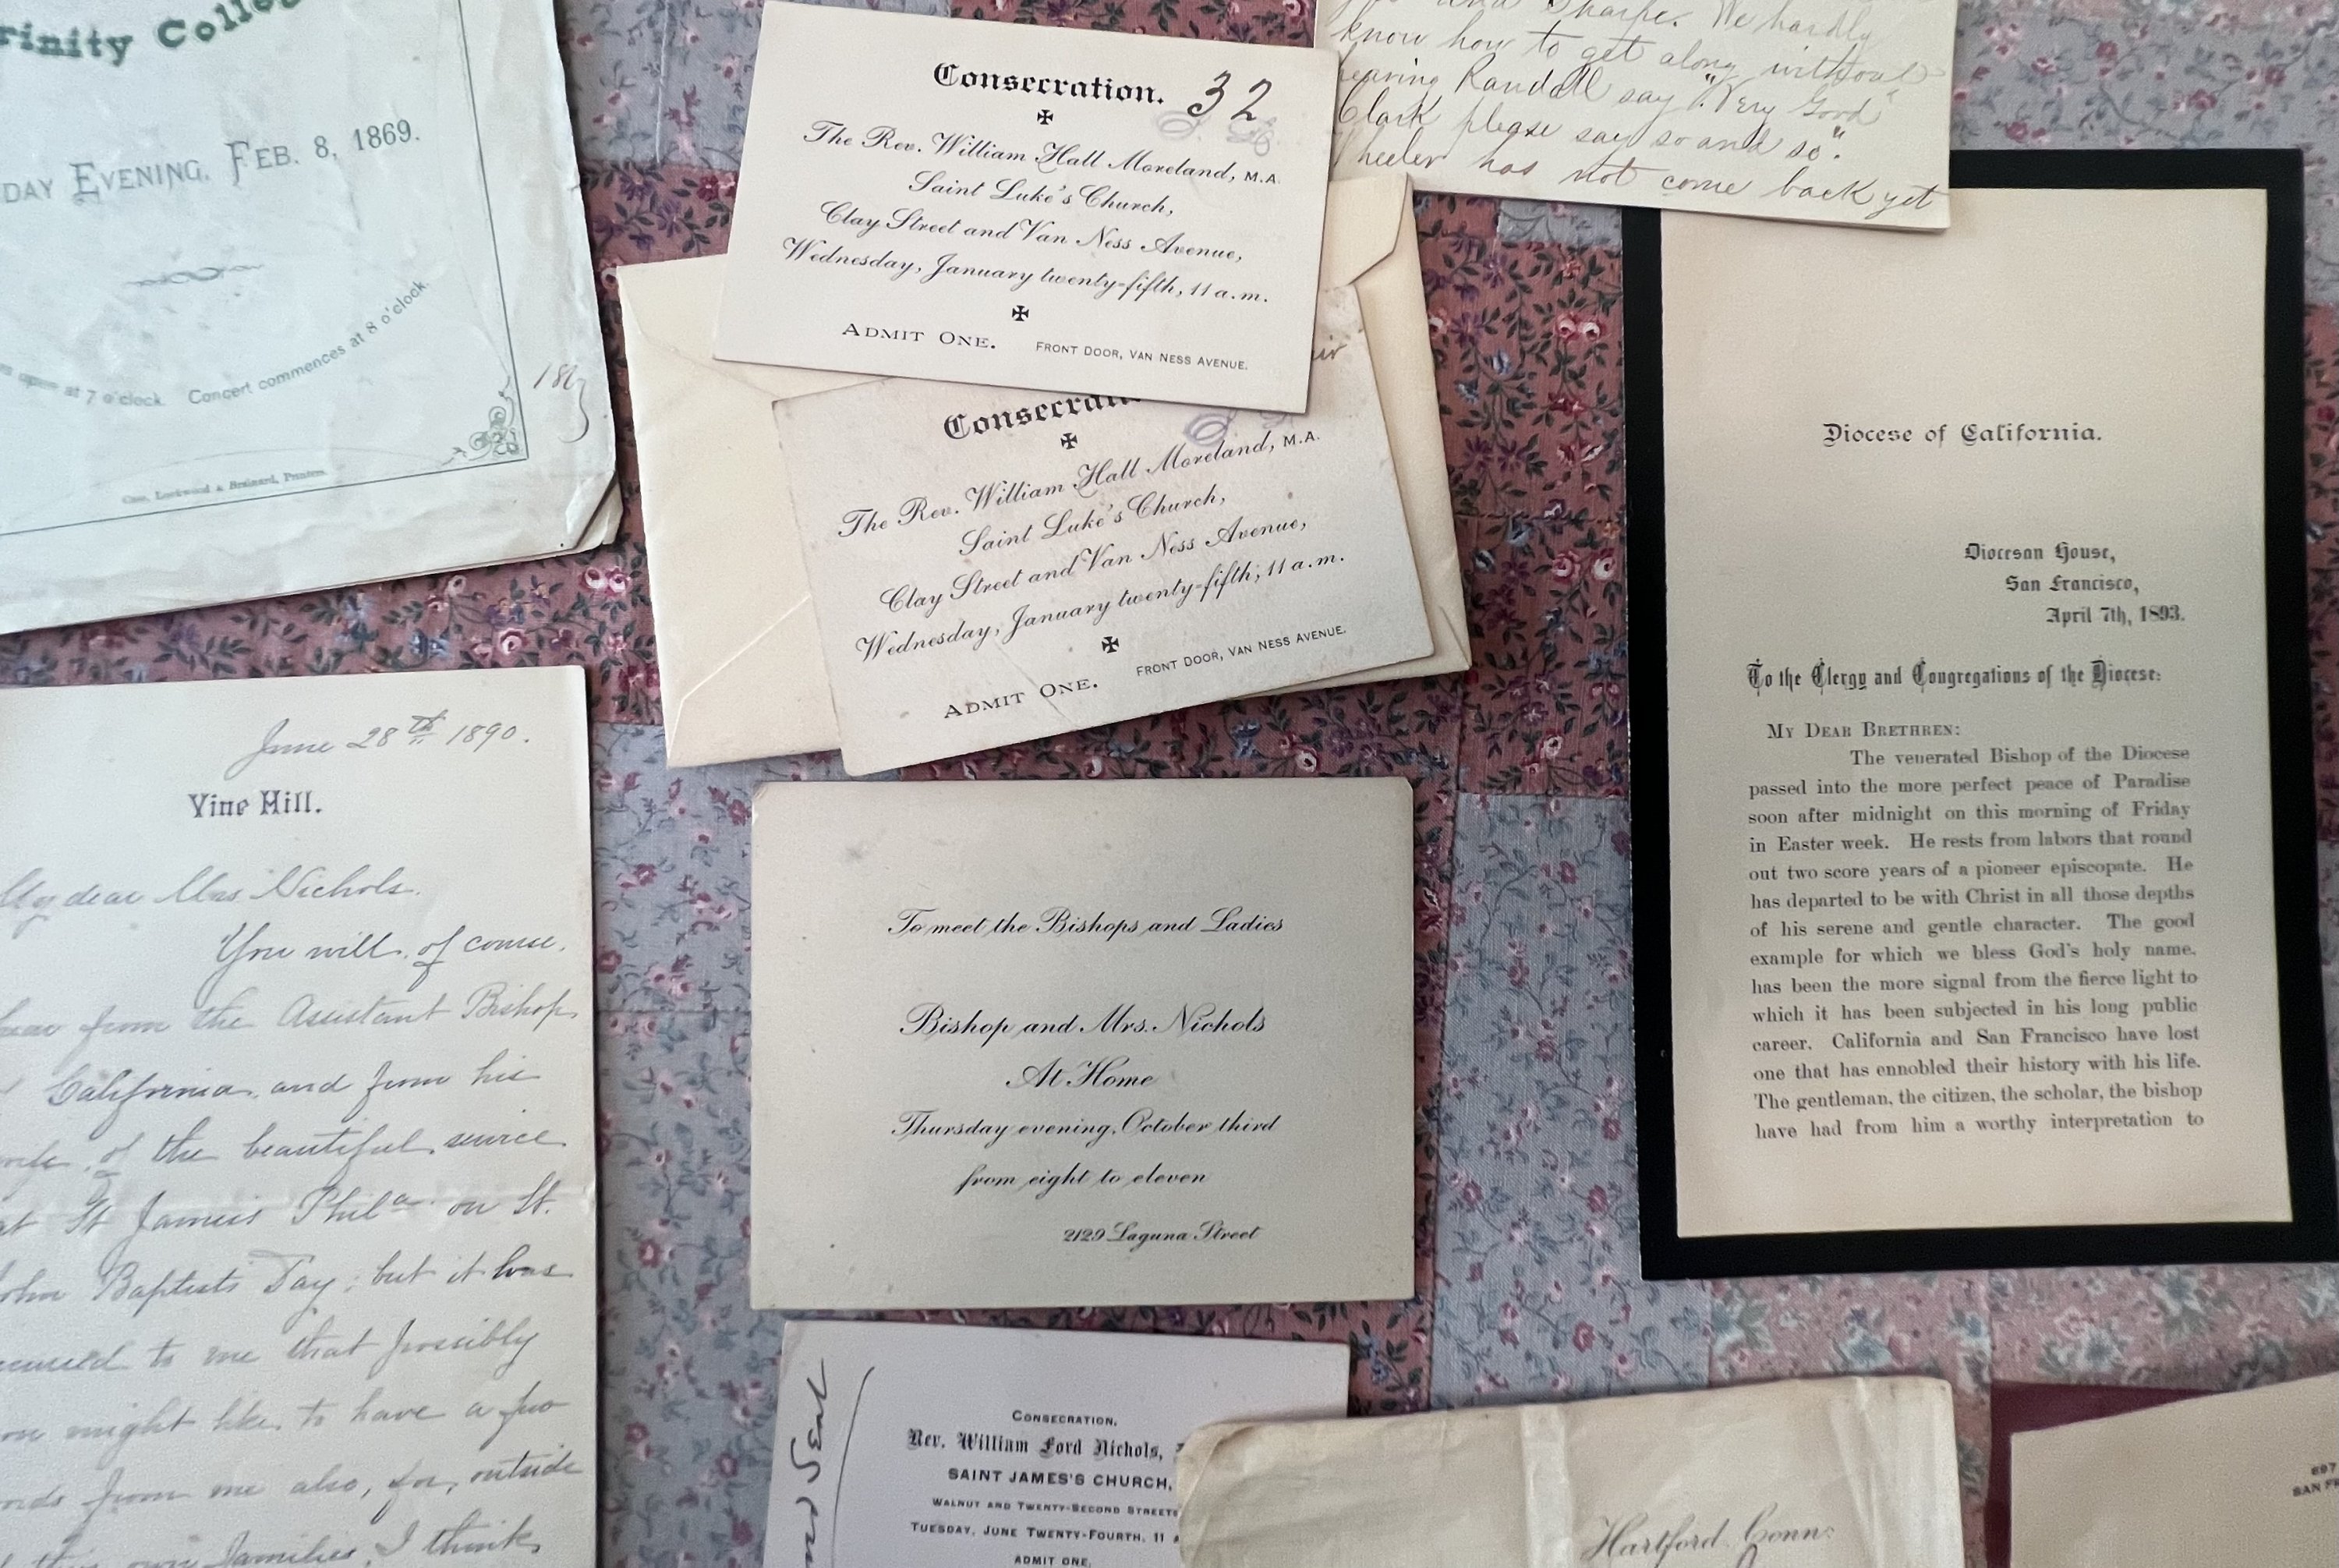 Trinity College
DAY EVENING, FEB. 8, 1869.
open at 7 o'clock. Concert commences at 8 o'clock.
Case, Lockwood & Brainard, Printers.
Consecration. 32
✠
The Rev. William Hall Moreland, M.A.
Saint Luke's Church,
Clay Street and Van Ness Avenue,
Wednesday, January twenty-fifth, 11 a.m.
✠
ADMIT ONE. FRONT DOOR, VAN NESS AVENUE.
✠
The Rev. William Hall Moreland, M.A.
Saint Luke's Church,
Clay Street and Van Ness Avenue,
Wednesday, January twenty-fifth, 11 a.m.
✠
ADMIT ONE. FRONT DOOR, VAN NESS AVENUE.
and Sharpe. We hardly
know how to get along without
hearing Randall say "Very Good
Clark please say so and so".
has not come back yet
Diocese of California.
Diocesan House,
San Francisco,
April 7th, 1893.
To the Clergy and Congregations of the Diocese:
MY DEAR BRETHREN:
The venerated Bishop of the Diocese
passed into the more perfect peace of Paradise
soon after midnight on this morning of Friday
in Easter week. He rests from labors that round
out two score years of a pioneer episcopate. He
has departed to be with Christ in all those depths
of his serene and gentle character. The good
example for which we bless God's holy name,
has been the more signal from the fierce light to
which it has been subjected in his long public
career. California and San Francisco have lost
one that has ennobled their history with his life.
The gentleman, the citizen, the scholar, the bishop
have had from him a worthy interpretation to
June 28th 1890.
Vine Hill.
My dear Mrs. Nichols.
You will, of course,
hear from the Assistant Bishop
California, and from his
wife, of the beautiful service
at St James's Phila on St.
John Baptist's Day; but it has
occurred to me that possibly
you might like to have a few
words from me also, for, outside
own families, I think
To meet the Bishops and Ladies
Bishop and Mrs. Nichols
At Home
Thursday evening, October third
from eight to eleven
2129 Laguna Street
Seat
CONSECRATION,
Rev. William Ford Nichols,
SAINT JAMES'S CHURCH,
WALNUT AND TWENTY-SECOND STREETS
TUESDAY, JUNE TWENTY-FOURTH, 11
ADMIT ONE,
Hartford Conn:
697
SAN